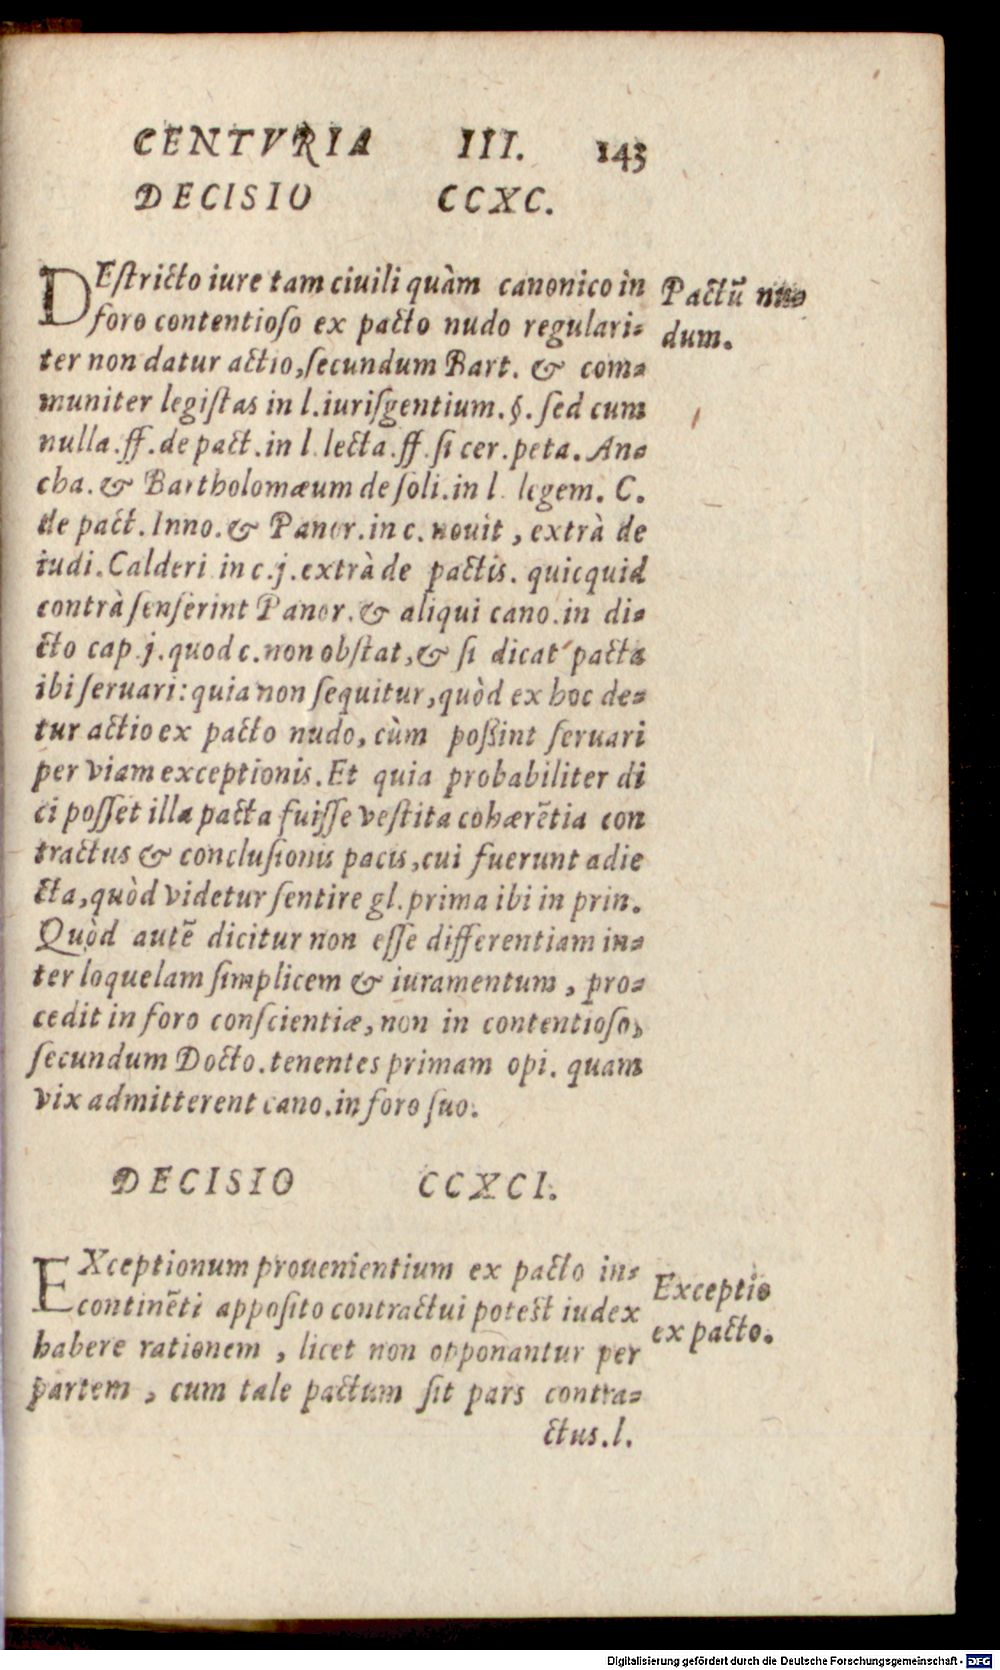 CENTVRIA III. 143
DECISIO CCXC.
DEſtricto iure tam ciuili quàm canonico in
foro contentioſo ex pacto nudo regulari⸗
ter non datur actio, ſecundum Bart. & com⸗
muniter legiſtas in l. iuriſgentium. §. ſed cum
nulla. ff. de pact. in l. lecta. ff. ſi cer. peta. An⸗
cha. & Bartholomæum de ſoli. in l. legem. C.
de pact. Inno. & Panor. in c. nouit, extrà de
iudi. Calderi in c. j. extrà de pactis. quicquid
contrà ſenſerint Panor. & aliqui cano. in di⸗
cto cap. j. quod c. non obſtat, & ſi dicat pacta
ibi ſeruari: quia non ſequitur, quòd ex hoc de⸗
tur actio ex pacto nudo, cùm poßint ſeruari
per viam exceptionis. Et quia probabiliter di
ci poſſet illa pacta fuiſſe veſtita cohærẽtia con
tractus & concluſionis pacis, cui fuerunt adie
cta, quòd videtur ſentire gl. prima ibi in prin.
Quòd autẽ dicitur non eſſe differentiam in⸗
ter loquelam ſimplicem & iuramentum, pro⸗
cedit in foro conſcientiæ, non in contentioſo,
ſecundum Docto. tenentes primam opi. quam
vix admitterent cano. in foro ſuo.
Pactũ nu⸗
dum.
DECISIO CCXCI.
EXceptionum prouenientium ex pacto in⸗
continẽti appoſito contractui poteſt iudex
habere rationem, licet non opponantur per
partem, cum tale pactum ſit pars contra⸗
ctus. l.
Exceptio
ex pacto.
Digitalisierung gefördert durch die Deutsche Forschungsgemeinschaft - DFG